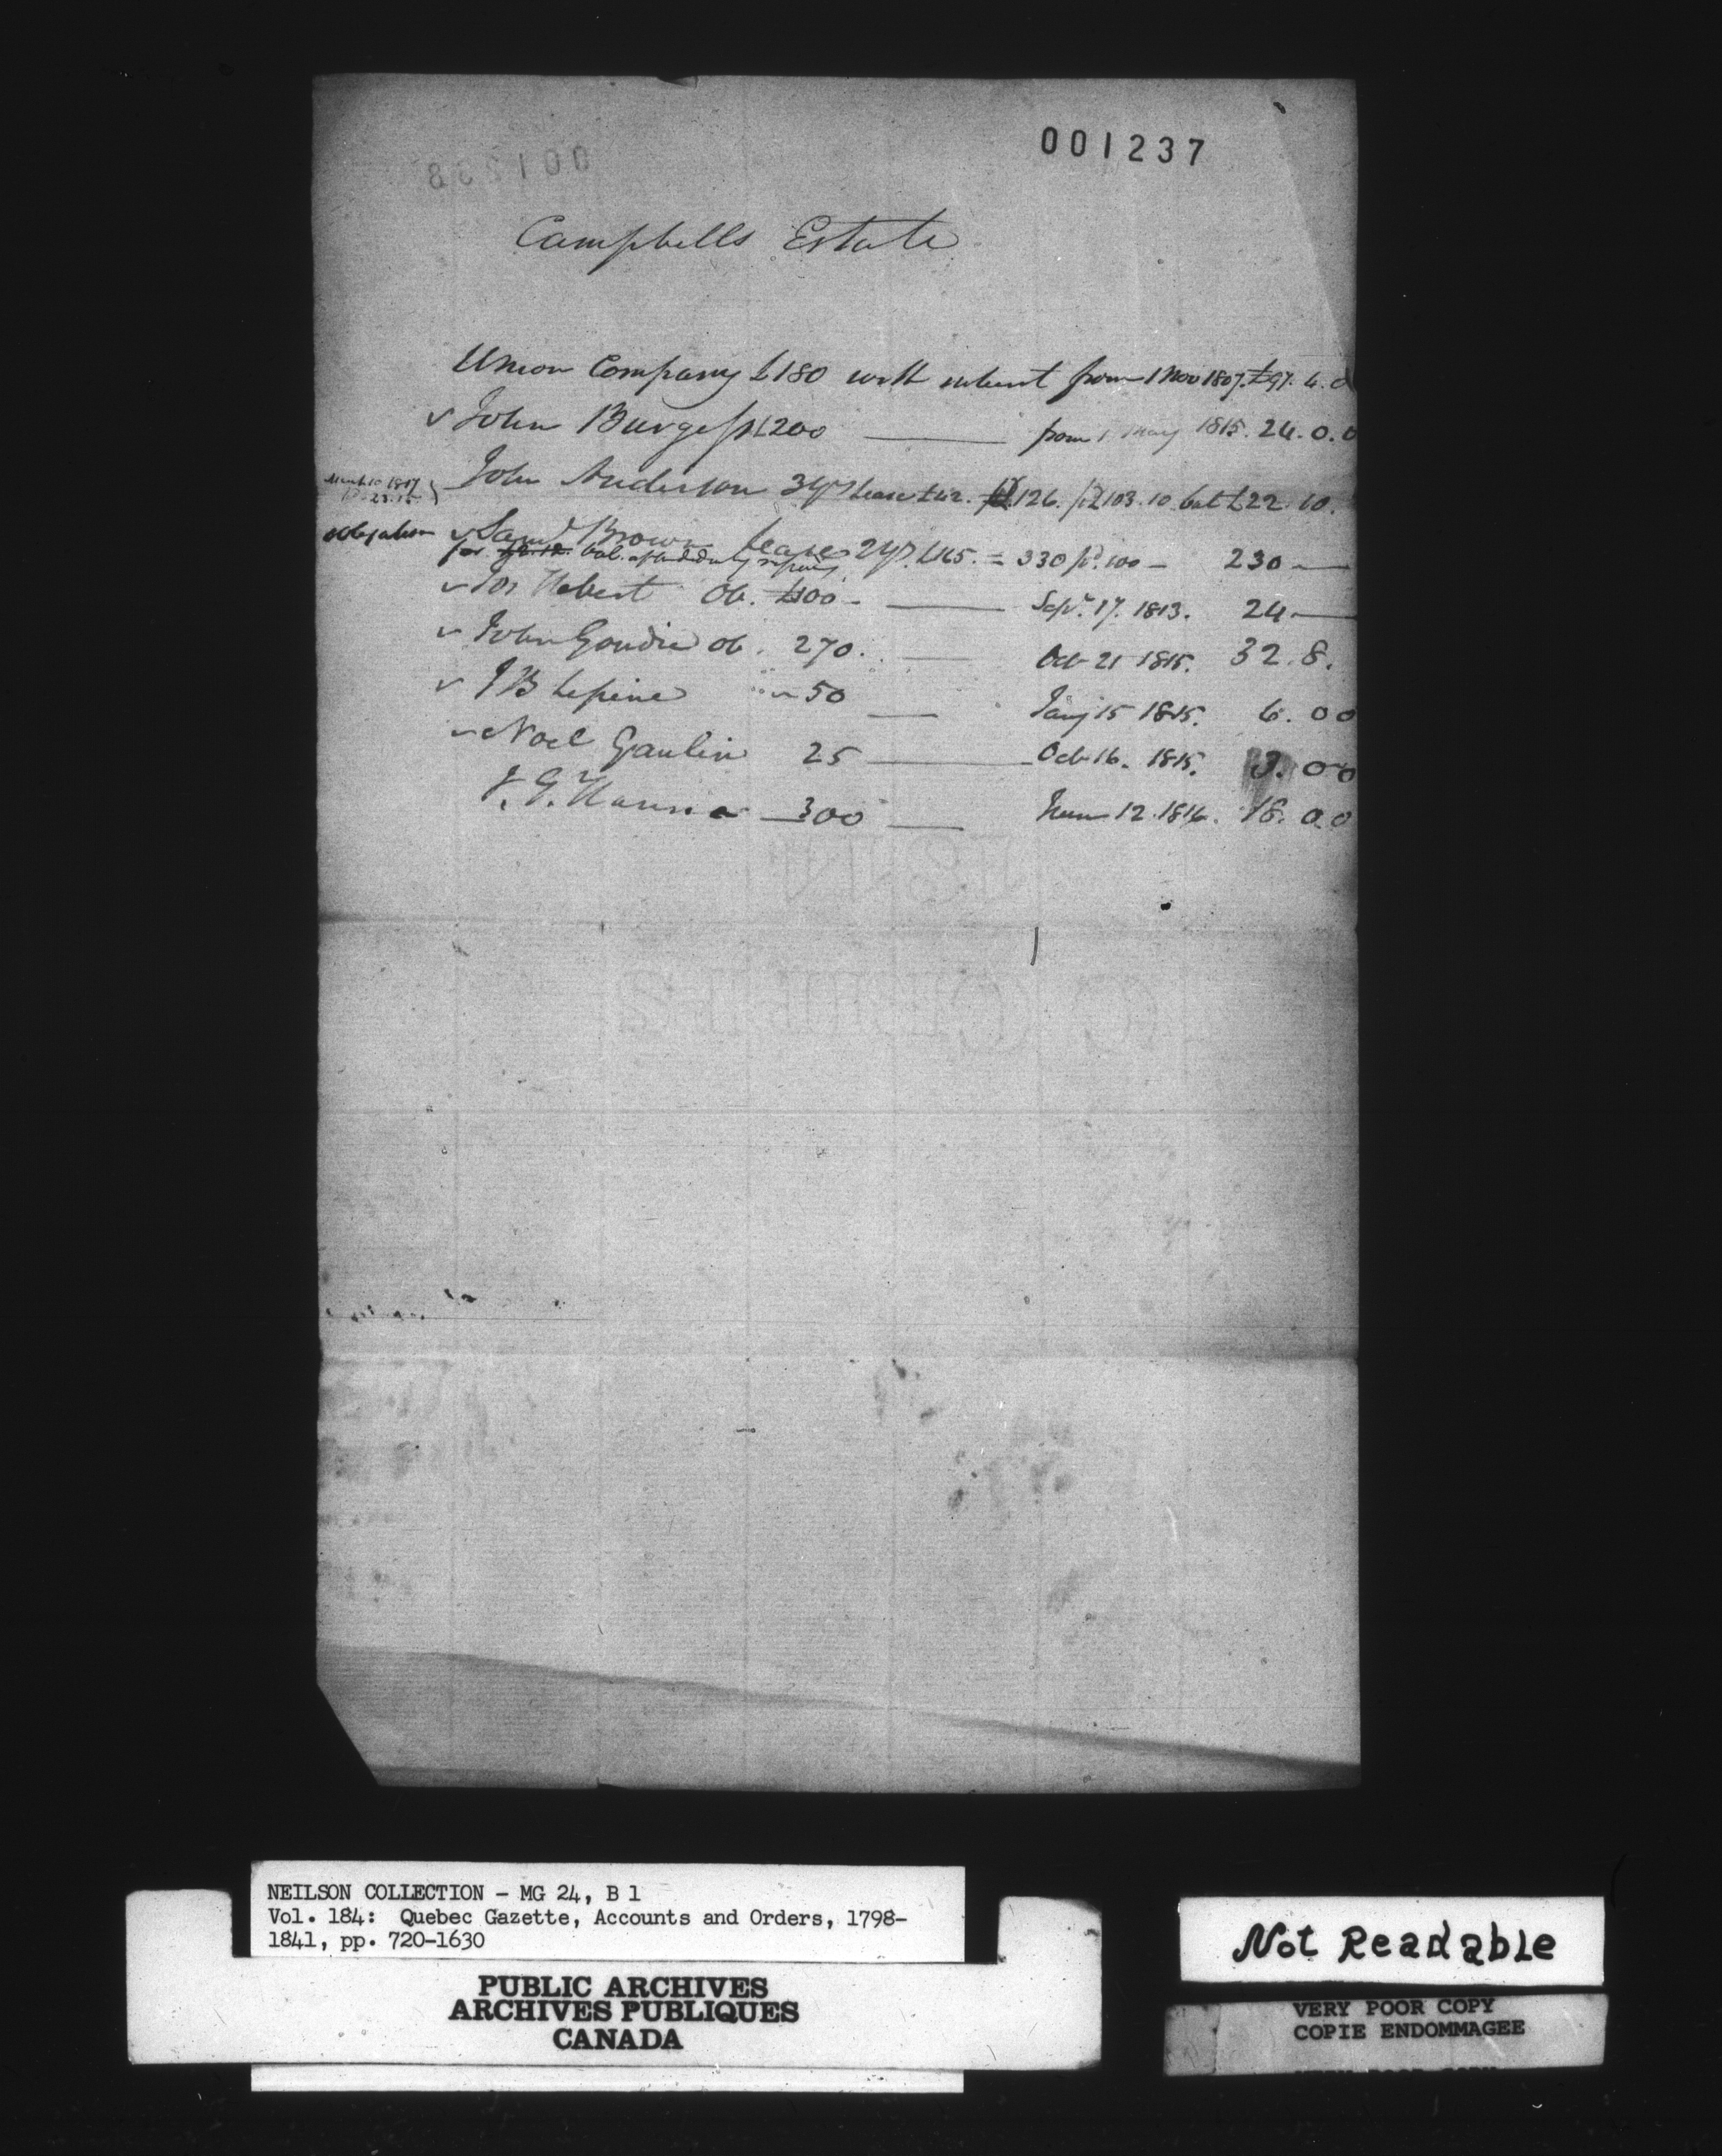 001237
001238
Campbells Estate
Union Company £180 with interest from 1 Nov 1807. £97. 4. 0
✓ John Burgess £200 — from 1 May 1815. 24. 0. 0
March 10 1817
John Anderson 3 yrs Lease £42. 126. pd £103. 10 bal £22. 10.
Obligation ✓ Saml Brown lease 2 yr. £165. = 330 pd. 100 — 230 —
for bal. of
✓ Hebert Ob. £100 — Sepr. 17. 1813. 24 —
✓ John Goudie ob. 270. — Oct 21 1815. 32. 8.
✓ J B Lepine " 50 — Jany 15 1815. 6. 0 0
✓ Noel Gaulin 25 — Oct 16. 1815. 3. 0 0
J. G. Hanna 300 — 12. 1816. 18. 0. 0
NEILSON COLLECTION - MG 24, B 1
Vol. 184: Quebec Gazette, Accounts and Orders, 1798-
1841, pp. 720-1630
PUBLIC ARCHIVES
ARCHIVES PUBLIQUES
CANADA
Not Readable
VERY POOR COPY
COPIE ENDOMMAGEE